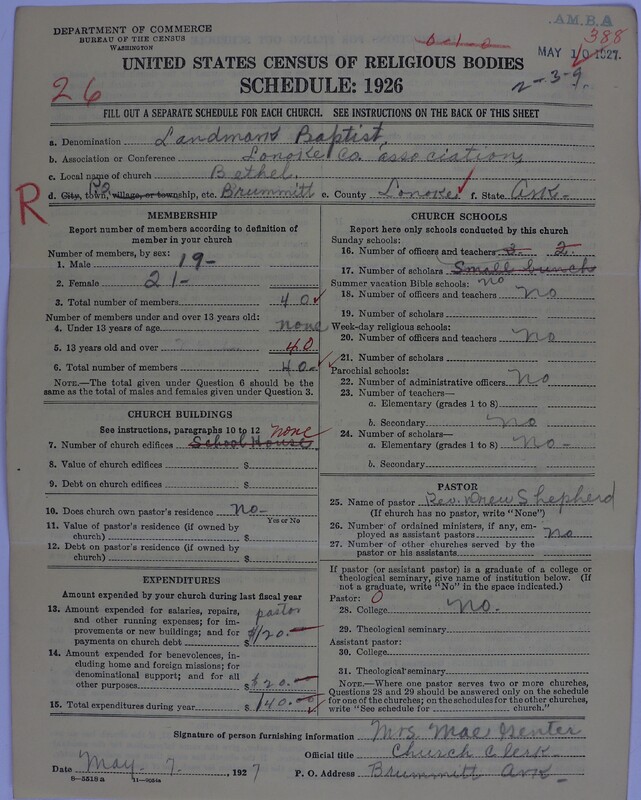 DEPARTMENT OF COMMERCE
BUREAU OF THE CENSUS
WASHINGTON
A.M.B.A
388
MAY 10 1927
UNITED STATES CENSUS OF RELIGIOUS BODIES
2-3-9
26
SCHEDULE: 1926
FILL OUT A SEPARATE SCHEDULE FOR EACH CHURCH. SEE INSTRUCTIONS ON THE BACK OF THIS SHEET
a. Denomination Landmark Baptist
b. Association or Conference Lonoke Co. association
c. Local name of church Bethel.
R
d. City, town, village, or township, etc. P.O. Brummitt e. County Lonoke f. State Ark-
MEMBERSHIP
Report number of members according to definition of member in your church
Number of members, by sex:
1. Male 19-
2. Female 21-
3. Total number of members 40
Number of members under and over 13 years old:
4. Under 13 years of age none
5. 13 years old and over 40
6. Total number of members 40
NOTE.—The total given under Question 6 should be the same as the total of males and females given under Question 3.
CHURCH BUILDINGS
See instructions, paragraphs 10 to 12 none
7. Number of church edifices School House
8. Value of church edifices $
9. Debt on church edifices $
10. Does church own pastor's residence no-
Yes or No
11. Value of pastor's residence (if owned by church) $
12. Debt on pastor's residence (if owned by church) $
EXPENDITURES
Amount expended by your church during last fiscal year
13. Amount expended for salaries, repairs, and other running expenses; for improvements or new buildings; and for payments on church debt pastor $120.
14. Amount expended for benevolences, including home and foreign missions; for denominational support; and for all other purposes $20.
15. Total expenditures during year $140.
CHURCH SCHOOLS
Report here only schools conducted by this church
Sunday schools:
16. Number of officers and teachers 3 2
17. Number of scholars Small bunch
Summer vacation Bible schools: no
18. Number of officers and teachers no
19. Number of scholars
Week-day religious schools:
20. Number of officers and teachers no
21. Number of scholars
Parochial schools:
22. Number of administrative officers no
23. Number of teachers—
a. Elementary (grades 1 to 8)
b. Secondary no
24. Number of scholars—
a. Elementary (grades 1 to 8) no-
b. Secondary
PASTOR
25. Name of pastor Rev. Drew Shepherd
(If church has no pastor, write "None")
26. Number of ordained ministers, if any, employed as assistant pastors no
27. Number of other churches served by the pastor or his assistants
If pastor (or assistant pastor) is a graduate of a college or theological seminary, give name of institution below. (If not a graduate, write "No" in the space indicated.)
Pastor: 0
28. College no.
29. Theological seminary
Assistant pastor:
30. College
31. Theological seminary
NOTE.—Where one pastor serves two or more churches, Questions 28 and 29 should be answered only on the schedule for one of the churches; on the schedules for the other churches, write "See schedule for church."
Signature of person furnishing information Mrs. Mae
Official title Church Clerk
Date May 7, 1927
P. O. Address Brummitt Ark-
8—5518 a